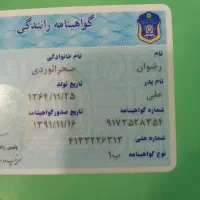 گواهینامه رانندگی
نام نام خانوادگی
رضوان صحرانوردی
نام پدر تاریخ تولد
علی ۱۳۶۴/۱۱/۲۵
شماره گواهینامه تاریخ صدور گواهینامه
۹۱۷۳۵۲۸۳۵۴ ۱۳۹۱/۱۱/۱۶
شماره ملی ۴۱۳۳۲۲۶۳۱۳
نوع گواهینامه ب۱